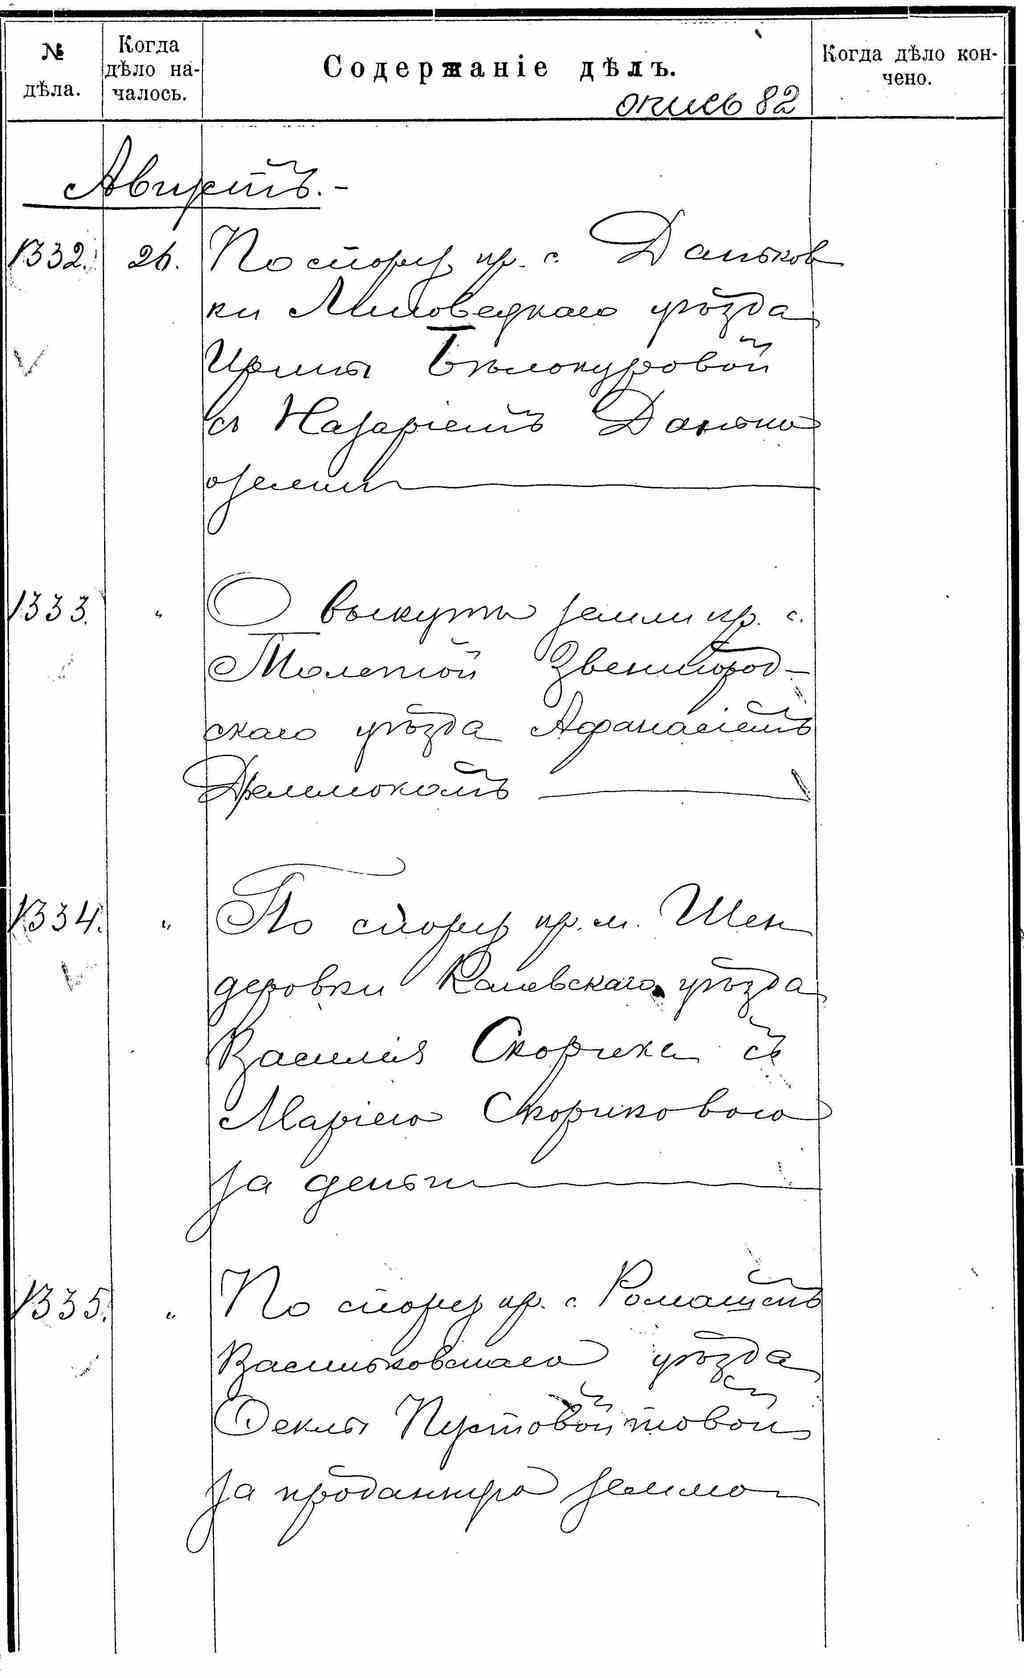 № дѣла.
Когда дѣло на-
чалось.
Содержаніе дѣлъ.
Когда дѣло кон-
чено.
опись 82
Августъ. -
1332. 26. По спору кр. с. Даньков
ки Липовецкаго уѣзда
Ирины Бѣлокуровой
съ Назаріемъ Данько
о земли
1333. " О выкупѣ земли кр. с.
Толстой Звенигород-
скаго уѣзда Афанасіемъ
1334. " По спору кр. м. Шен
деровки Каневскаго уѣзда
Василія Скорика съ
Маріею Скориковою
за деньги
1335. " По спору кр. с. Ромашекъ
Васильковскаго уѣзда
Феклы Пустовойтовой
за проданную землю